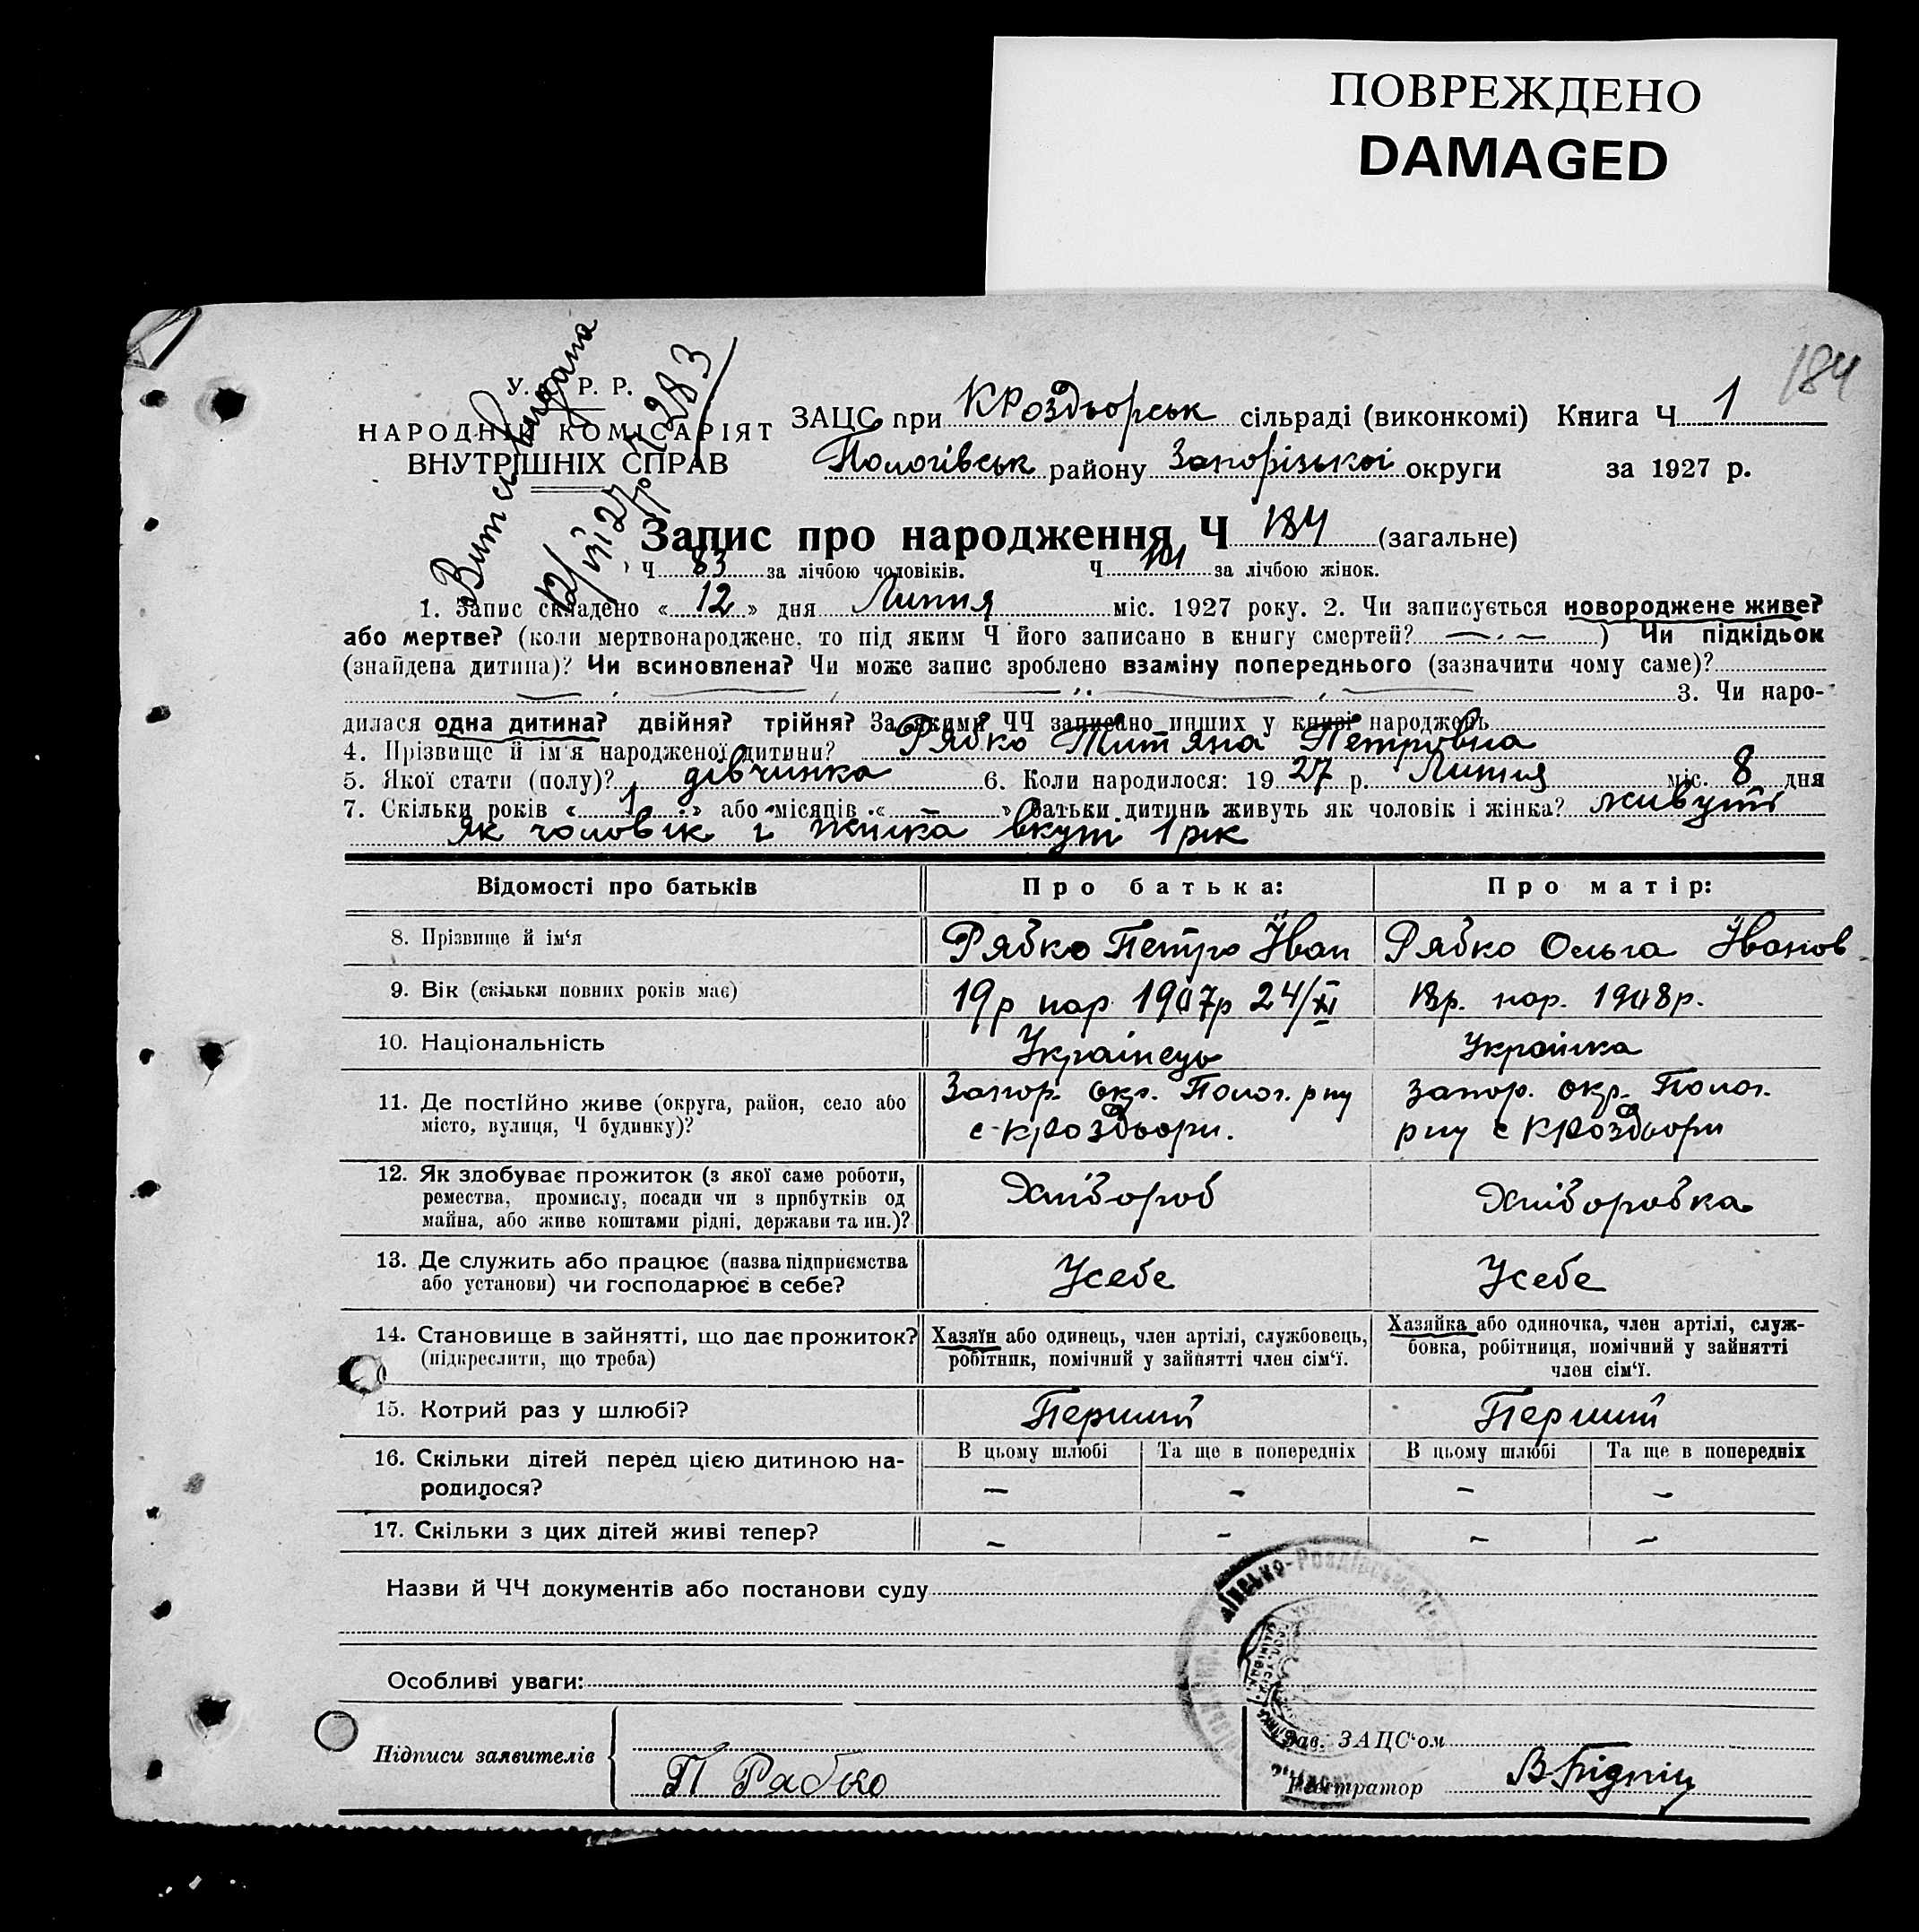 ПОВРЕЖДЕНО
DAMAGED
184
У. Р. Р.
НАРОДНІЙ КОМІСАРІЯТ
ВНУТРІШНІХ СПРАВ
Вип
видана
12/VII 27р 283
ЗАЦС при КРоздорськ сільраді (виконкомі) Книга Ч 1
Пологівськ району Запорізької округи за 1927 р.
Запис про народження Ч 184 (загальне)
Ч 83 за лічбою чоловіків. Ч 101 за лічбою жінок.
1. Запис складено « 12 » дня Липня міс. 1927 року. 2. Чи записується новороджене живе?
або мертве? (коли мертвонароджене, то під яким Ч його записано в книгу смертей? — . — ) Чи підкідьок
(знайдена дитина)? Чи всиновлена? Чи може запис зроблено взаміну попереднього (зазначити чому саме)?
3. Чи наро-
дилася одна дитина? двійня? трійня? За якими ЧЧ записано инших у книзі народжень
4. Прізвище й ім'я народженої дитини? Рябко Титяна Петровна
5. Якої стати (полу)? дівчинка 6. Коли народилося: 19 27 р. Липня міс. 8 дня
7. Скільки років « 1 » або місяців « – » батьки дитини живуть як чоловік і жінка? живуть
як чоловік і жинка вкупі 1 рік
Відомості про батьків Про батька: Про матір:
8. Прізвище й ім‘я Рябко Петро Іван Рябко Ольга Іванов
9. Вік (скільки повних років має) 19р нар 1907р 24/XI 18р. нар. 1908р.
10. Національність Українець Українка
11. Де постійно живе (округа, район, село або Запор. окр. Полог. рну запор. окр. Полог.
місто, вулиця, Ч будинку)? с-кроздори. рну с кроздори
12. Як здобуває прожиток (з якої саме роботи,
ремества, промислу, посади чи з прибутків од Хлібороб Хліборобка
майна, або живе коштами рідні, держави та ин.)?
13. Де служить або працює (назва підприємства Усебе Усебе
або установи) чи господарює в себе?
14. Становище в зайнятті, що дає прожиток? Хазяїн або одинець, член артілі, службовець, Хазяйка або одиночка, член артілі, служ-
(підкреслити, що треба) робітник, помічний у зайнятті член сім‘ї. бовка, робітниця, помічний у зайнятті
член сім‘ї.
15. Котрий раз у шлюбі? Перший Перший
16. Скільки дітей перед цією дитиною на- В цьому шлюбі Та ще в попередніх В цьому шлюбі Та ще в попередніх
родилося? – – – –
17. Скільки з цих дітей живі тепер? – – – –
Назви й ЧЧ документів або постанови суду
Особливі уваги:
Зав. ЗАЦС‘ом
Підписи заявителів П Рабко Реєстратор